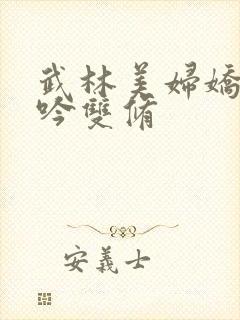 武林美婦嬌
吟雙脩
安義士